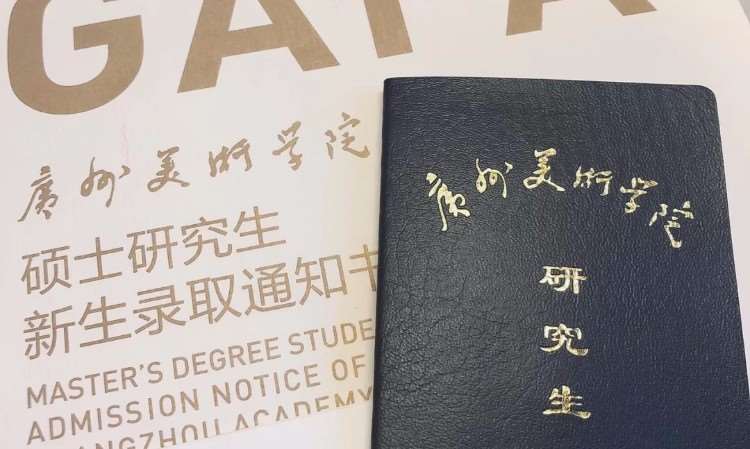 GAFA
廣州美術学院
硕士研究生
新生录取通知书
MASTER'S DEGREE STUDE
ADMISSION NOTICE OF
GUANGZHOU ACADEMY
廣州美術学院
研
究
生